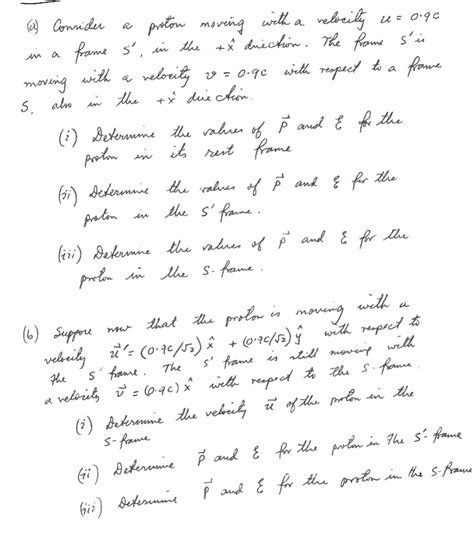 (a) Consider a proton moving with a velocity u = 0.9c
in a frame S', in the +x̂ direction. The frame S' is
moving with a velocity v = 0.9c with respect to a frame
S, also in the +x̂ direction.
(i) Determine the values of p⃗ and ℰ for the
proton in its rest frame
(ii) Determine the values of p⃗ and ℰ for the
proton in the S' frame.
(iii) Determine the values of p⃗ and ℰ for the
proton in the S-frame.
(b) Suppose now that the proton is moving with a
velocity u⃗' = (0.9c/√2) x̂ + (0.9c/√2) ŷ with respect to
the S' frame. The S' frame is still moving with
a velocity v⃗ = (0.9c) x̂ with respect to the S-frame.
(i) Determine the velocity u⃗ of the proton in the
S-frame
(ii) Determine p⃗ and ℰ for the proton in the S'-frame
(iii) Determine p⃗ and ℰ for the proton in the S-frame